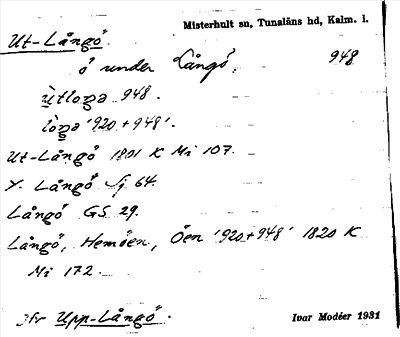 Misterhult sn, Tunaläns hd, Kalm. l.
Ut-Långö.
ö under Långö, 948
948.
'920 + 948'.
Ut-Långö 1801 K Mi 107.
Y. Långö Sj 64.
Långö GS 29.
Långö, Hemöen, Öen '920+948' 1820 K
Mi 172.
Jfr Upp-Långö.
Ivar Modéer 1931